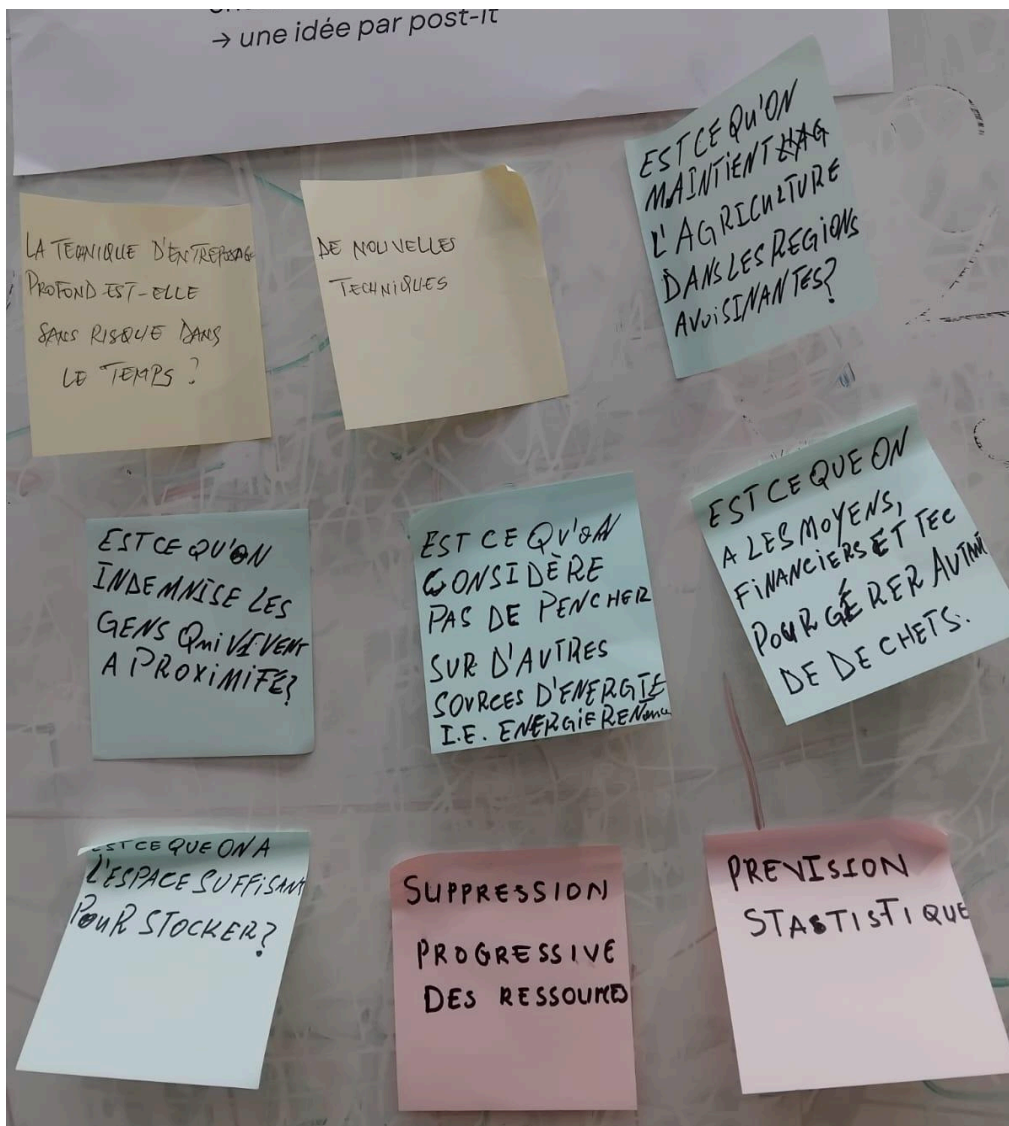 → une idée par post-it
LA TECHNIQUE D'ENTREPOSAGE
PROFOND EST-ELLE
SANS RISQUE DANS
LE TEMPS ?
DE NOUVELLES
TECHNIQUES
EST CE QU'ON
MAINTIENT
L'AGRICULTURE
DANS LES REGIONS
AVOISINANTES?
EST CE QU'ON
INDEMNISE LES
GENS QUI VIVENT
A PROXIMITÉ?
EST CE QU'ON
CONSIDÈRE
PAS DE PENCHER
SUR D'AUTRES
SOURCES D'ENERGIE
I.E. ENERGIE
EST CE QUE ON
A LES MOYENS,
FINANCIERS ET TEC
POUR GÉRER AUTANT
DE DECHETS.
EST CE QUE ON A
L'ESPACE SUFFISANT
POUR STOCKER?
SUPPRESSION
PROGRESSIVE
DES RESSOURCES
PREVISION
STASTISTIQUE